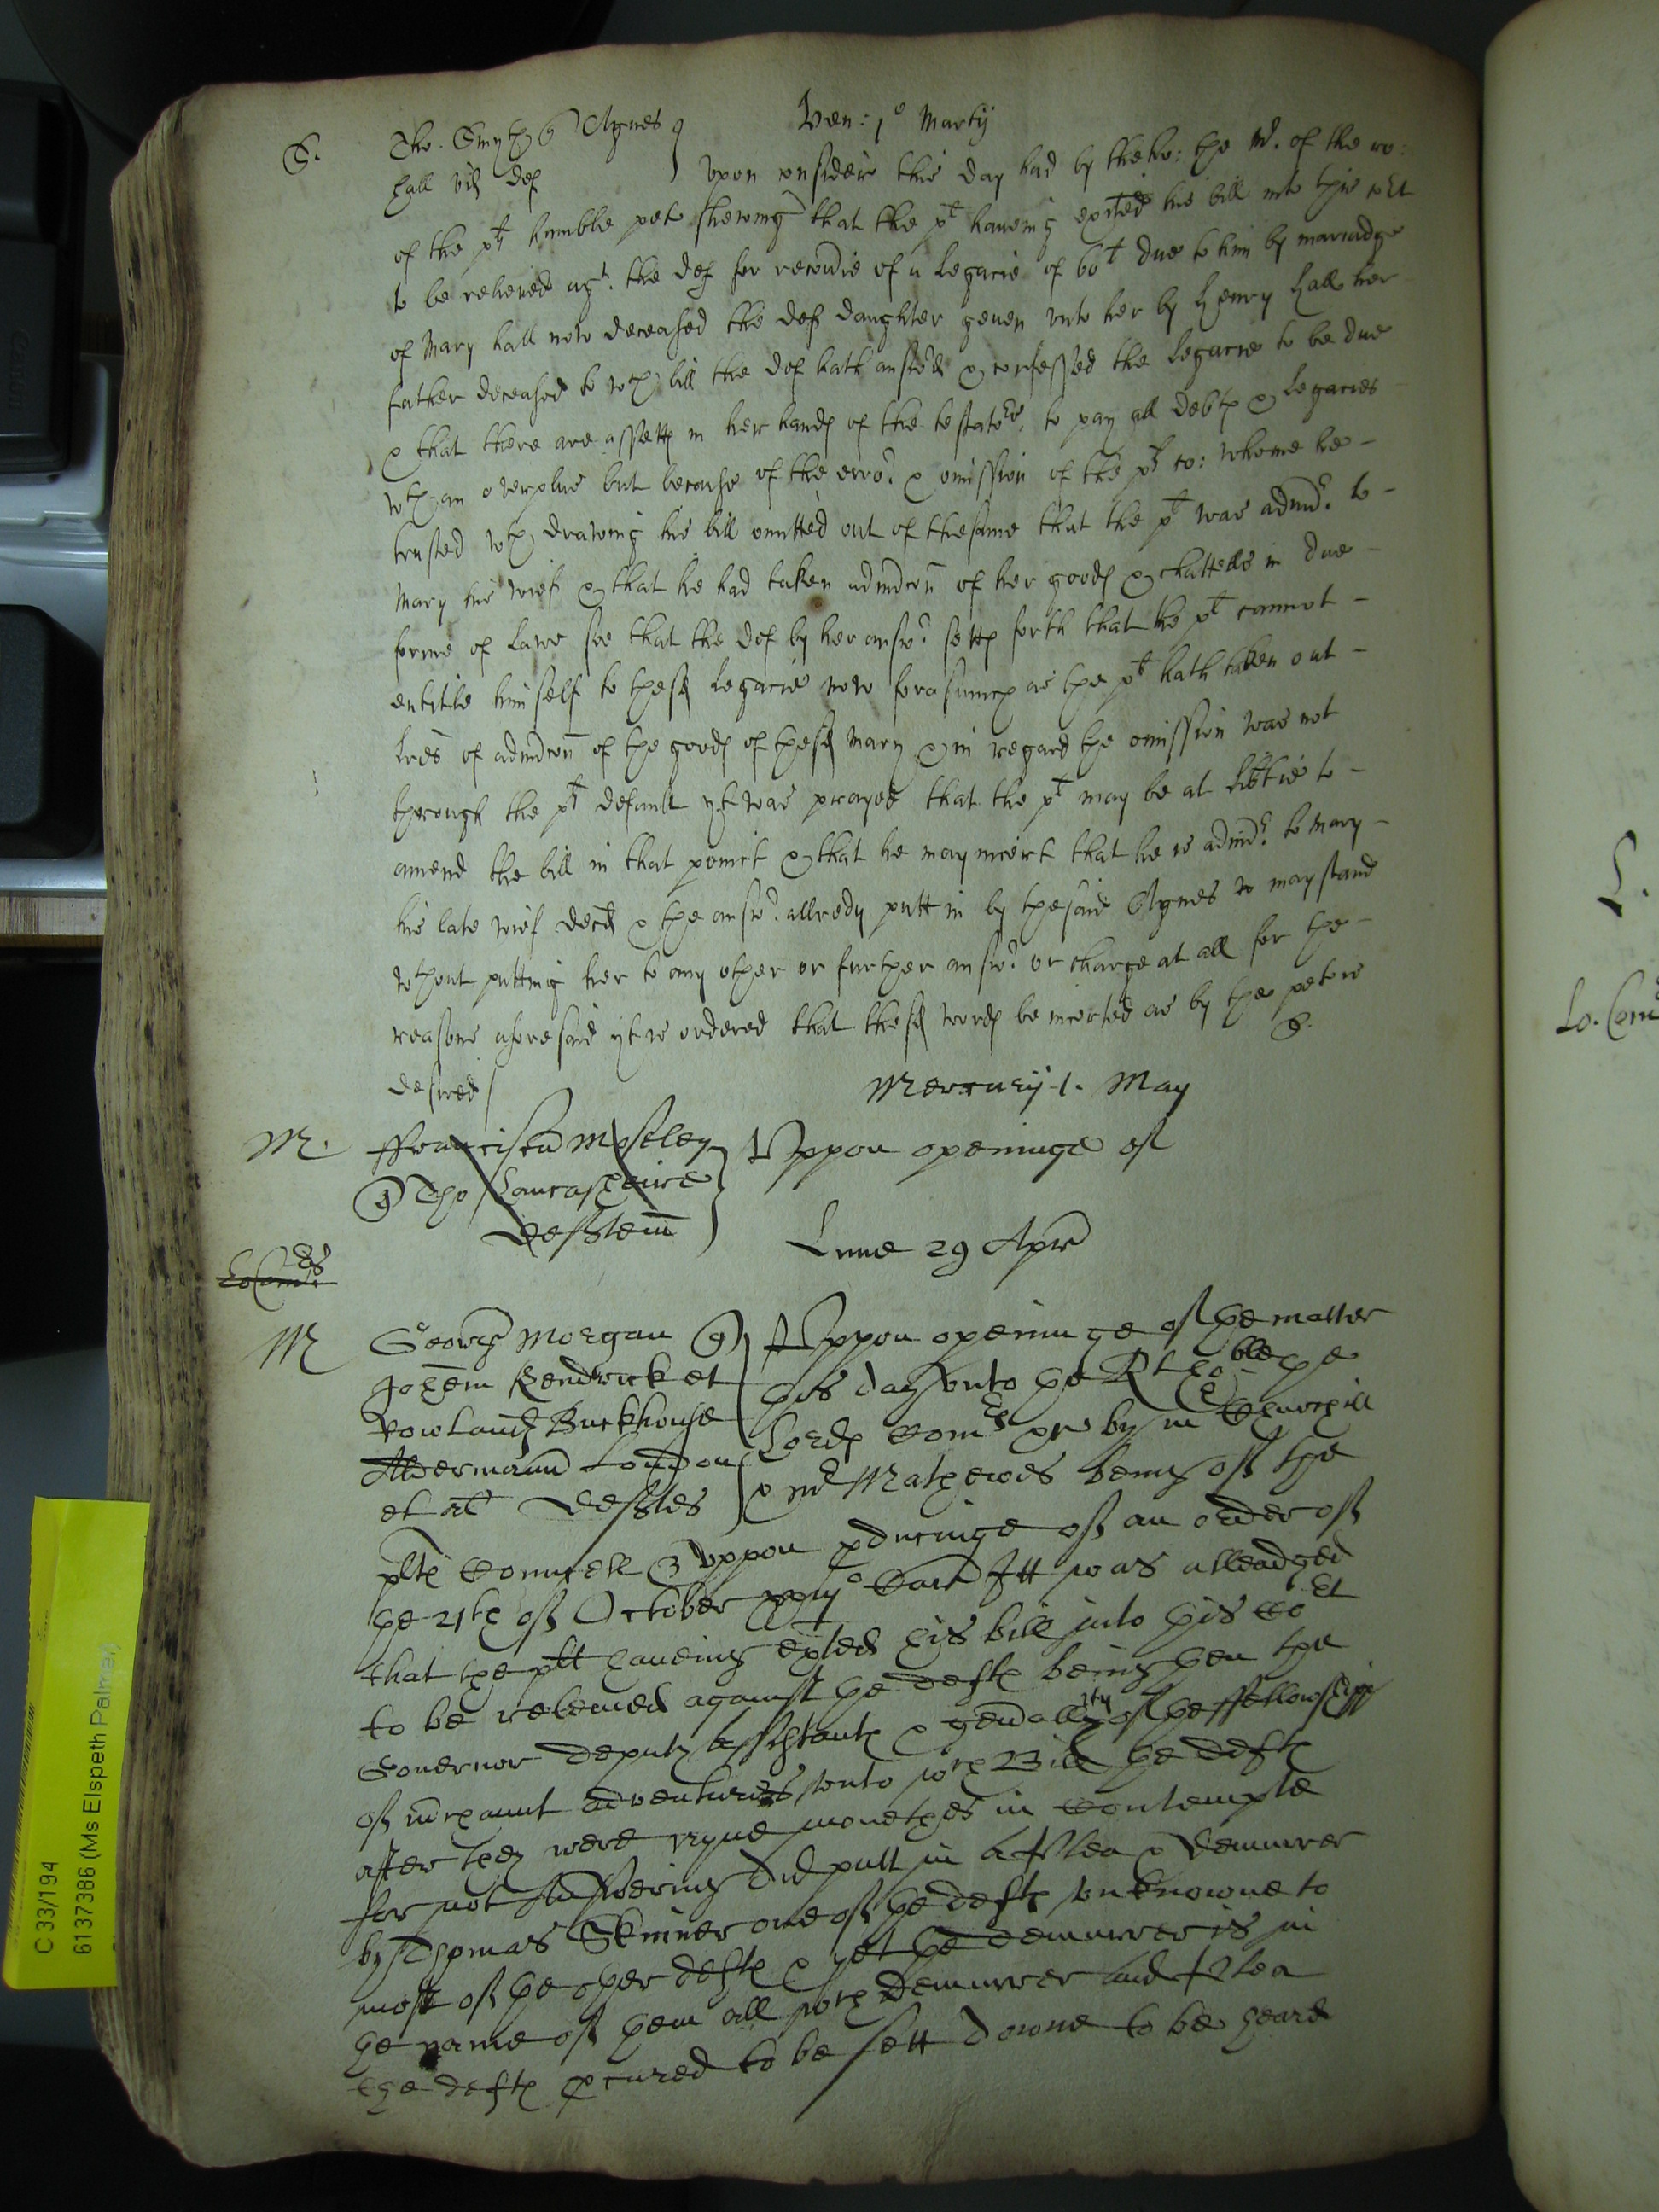 Ven: 1° Martij
S. Tho. Smyth q Agnes
Hall vid def
Upon considerac this day had by the ho: the Mr. of the ro:
of the plt humble petc shewing that the plt haveing exhited his bill into this cort
to be releived agt. the def for recoverie of a Legacie of 60l due to him by mariadge
of Mary hall now deceased the def daughter geven unto her by Henry Hall her
father deceased to wch bill the def hath answed & confessed the Legacie to be due
& that there are assetts in her hands of the testators, to pay all debts & Legacies
wth an overplus but because of the erro & omission of the plts co: whome he
trusted wth drawing his bill omitted out of the same that the plt was admr to
Mary his wief & that he had taken admcon of her goods & chattells in due
forme of Lawe soe that the def by her answ setts forth that the plt cannot
entitle him self to the sd Legacie now forasmuch as the plt hath taken out
Lres of admcon of the goods of the sd Mary & in regard the omission was not
through the plts default yt was prayed that the plt may be at libtie to
amend the bill in that point & that he may incert that he is admr to Mary
his late wief decd & the answ allredy putt in by the said Agnes may stand
wthout putting her to any other or further answ or charge at all for the
reasons aforesaid yt is ordered that these words be incerted as by the petc is
desired S.
Mercurij 1. May
M. Franciscu Moseley
q Tho Lancasheire
defftem
Uppon openinge of
Lune 29 April
Lo Coms
M George Morgan q
Johem Kendrick et
Rowland Backhouse
Aldermann London
et al deftes
Uppon openinge of the matter
this day unto the Rt hoble the
Lords Coms &c by mr Churchill
& mr Mathewes being of the
plts Councell & uppon pducinge of an order of
the 21th of October xxiij° Car Itt was alleadged
that the plt haveing exhited his bill into this Cort
to be releived against the defts being then the
Governor deputy Assistants & genallity of the ffellowshipp
of mrchannt adventurers, unto wch Bill the defts
after they were nyne monethes in Contempte
for not Answering did putt in a Plea & Demurrer
by Thomas Skinner one of the defts unknowne to
most of the other defts & yet the demurrer is in
the name of them all wch Demurrer and Plea
the defts pcured to be sett downe to be heard
L.
Lo. Com
C 33/194
61373886 (Ms Elspeth Palmer)